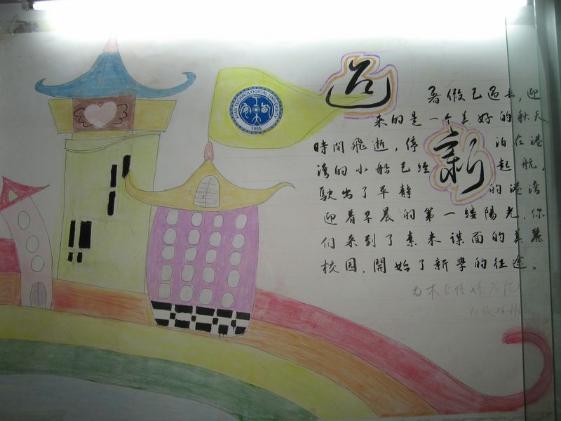 迎
新
暑假已過去,迎
来的是一个美好的秋天
時間飛逝,停泊在港
湾的小船已经起航,
駛出了平静的港湾
迎着早晨的第一缕陽光,你
们来到了素未谋面的美麗
校园,開始了新學的征途。